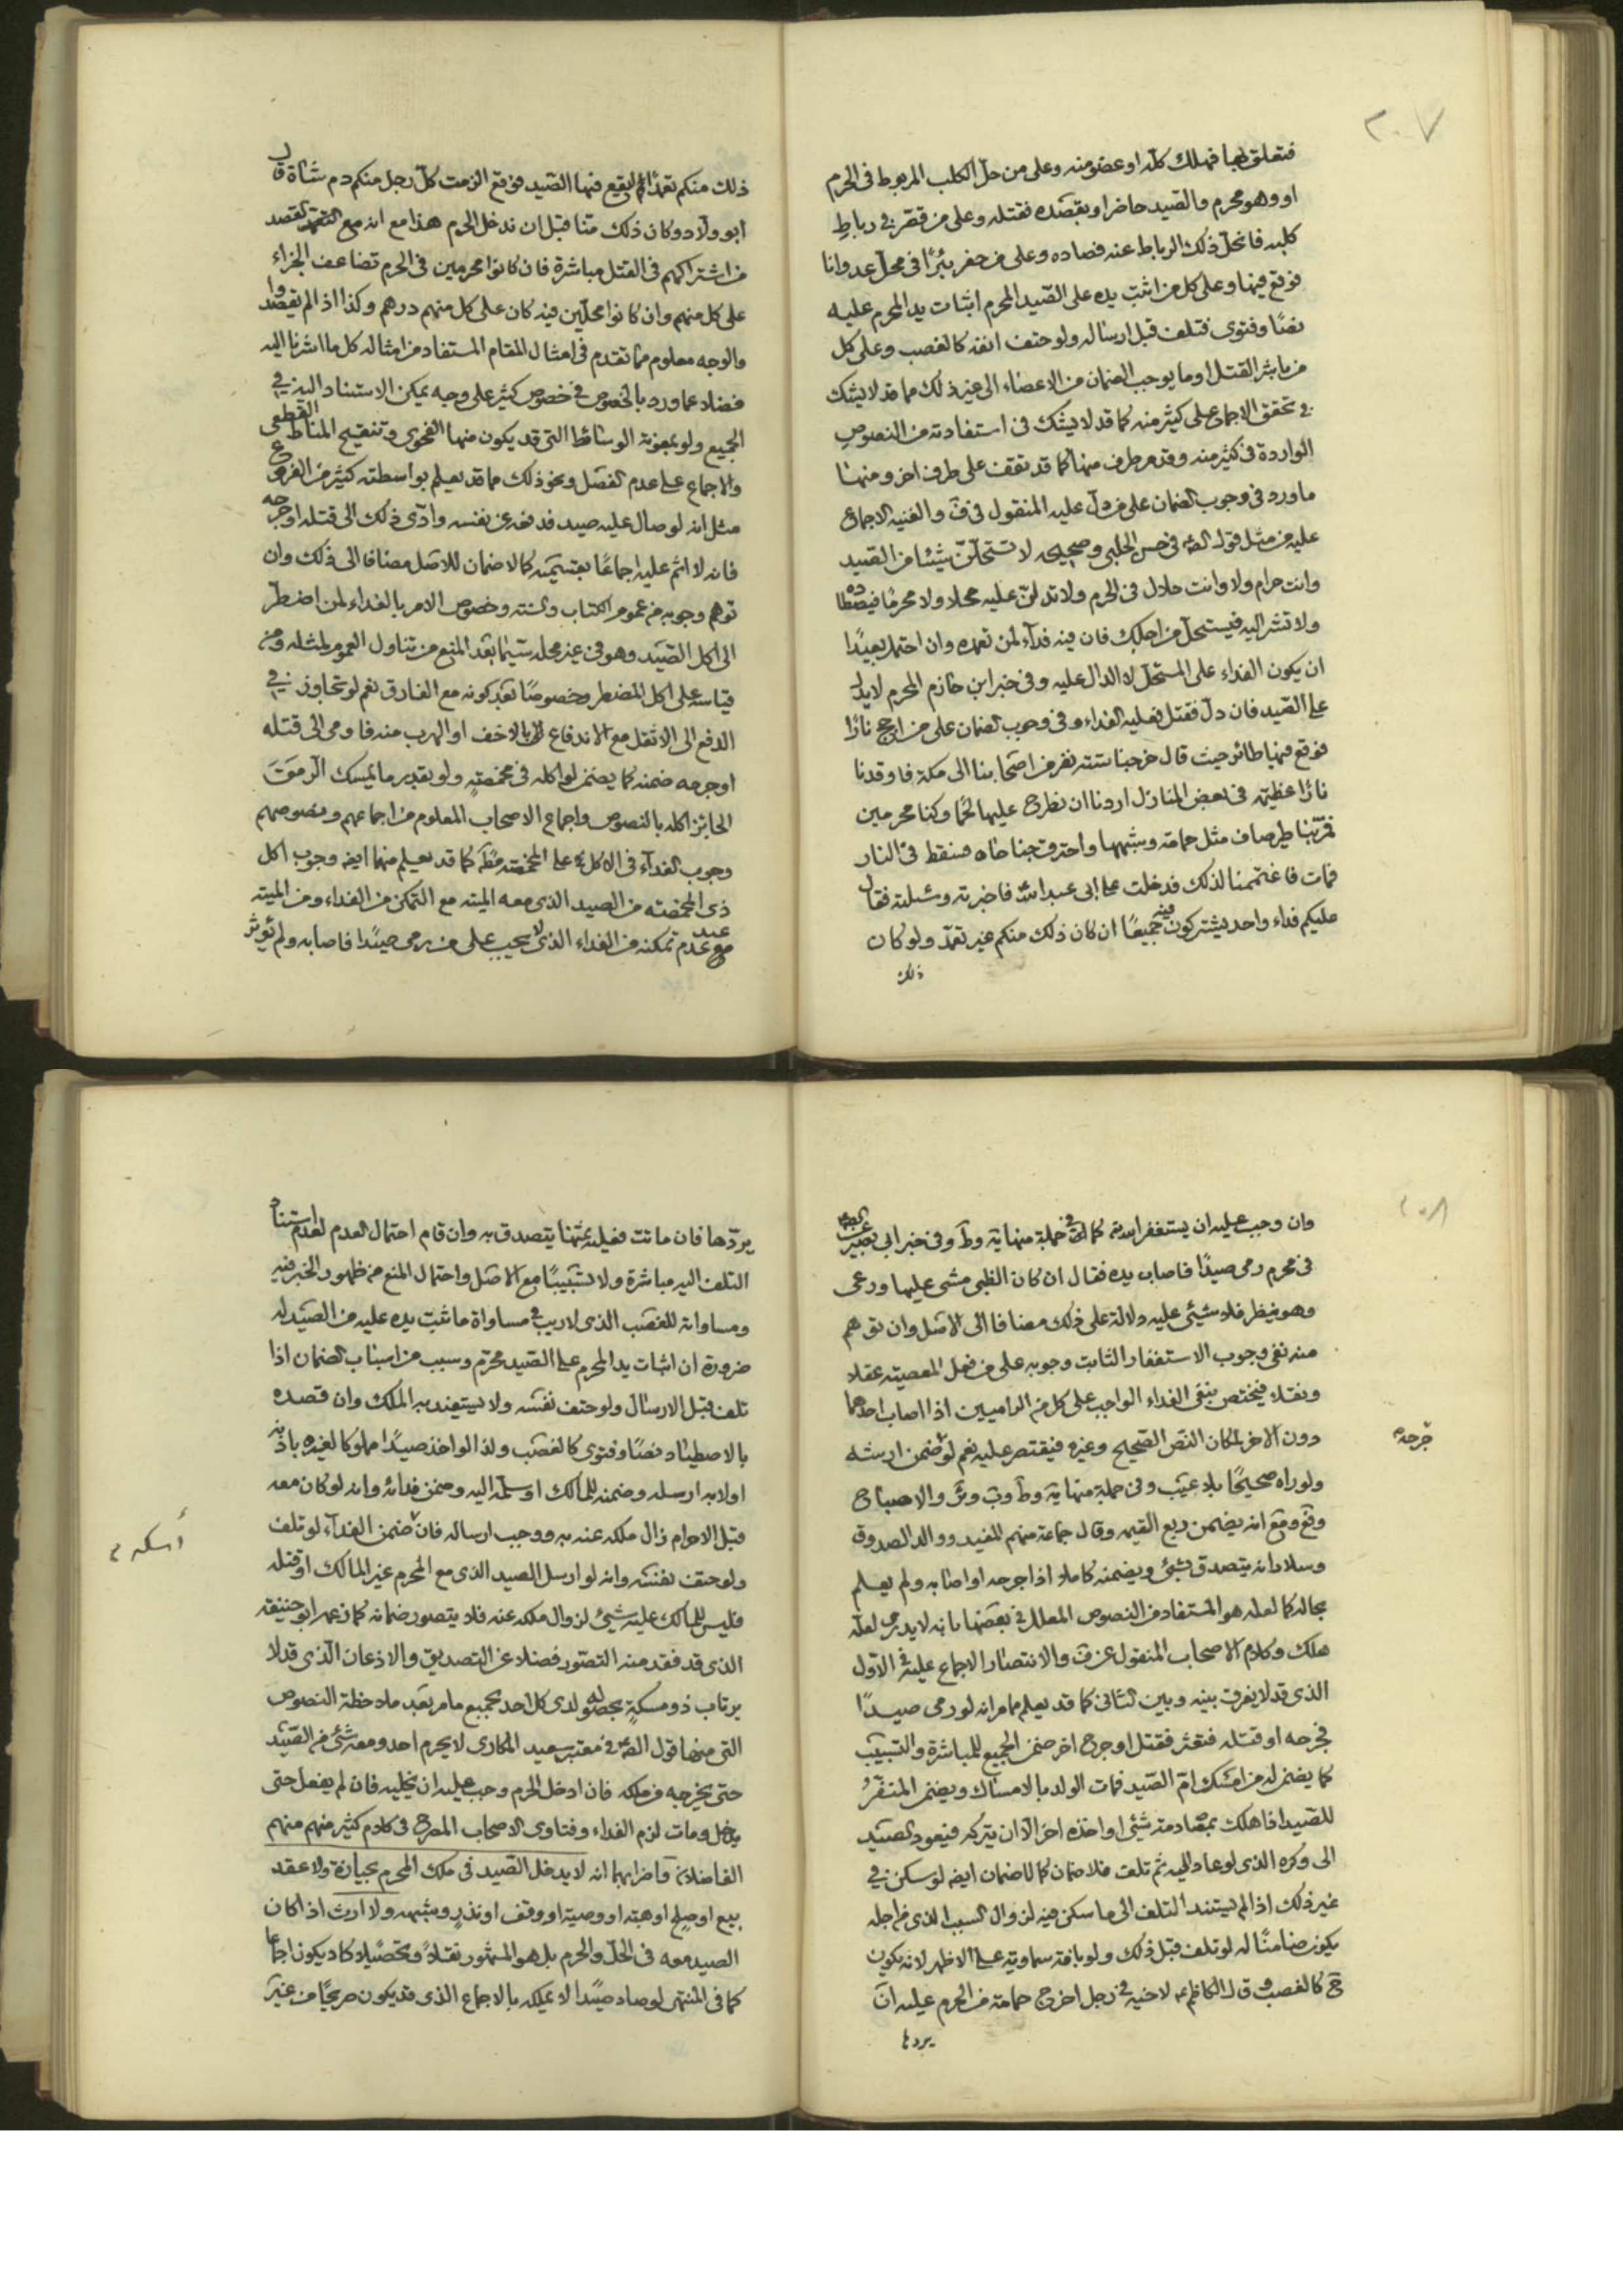 ٢٠٧
فتعلق بها فهلك كله او عضو منه وعلى من حل الكلب المربوط فى الحرم
او وهو محرم والصيد حاضر او بقصده فقتله وعلى من قصر فى رباط
كلبه فانحل ذلك الرباط عنه فصاده وعلى من حفر بئرًا فى محل عدوانا
فوقع فيها وعلى كل من اثبت يده على الصيد المحرم اثبات يد المحرم عليه
نصًا وفتوى فتلف قبل ارساله ولو حتف انفه كالغصب وعلى كل
من باشر القتل او ما يوجب الضمان من الاعضاء الى غير ذلك مما قد لا يشك
فى تحقق الاجماع على كثير منه كما قد لا يشك فى استفادته من النصوص
الواردة فى كثير منه وقد مر طرف منها كما قد تقف على طرف اخر ومنها
ما ورد فى وجوب الضمان على من دل عليه المنقول فى ف والغنيه الاجماع
عليه من مثل قول الص فى حسن الحلبى وصحيحه لا تستحلن شيئا من الصيد
وانت حرام ولا وانت حلال فى الحرم ولا تدلن عليه محلا ولا محرمًا فيصطاده
ولا تشر اليه فيستحل من اجلك فان فيه فداء لمن تعمده وان احتمل بعيدًا
ان يكون الفداء على المستحل لا الدال عليه وفى خبر ابن حازم المحرم لا يدل
على الصيد فان دل فقتل فعليه الفداء وفى وجوب الضمان على من اجج نارًا
فوقع فيها طائر حيث قال خرجنا ستة نفر من اصحابنا الى مكة فاوقدنا
نارًا عظيمة فى بعض المنازل اردنا ان نطرح عليها لحمًا وكنا محرمين
فمر بنا طير صاف مثل حمامة وشبهها واحترق جناحاه فسقط فى النار
فمات فاغتممنا لذلك فدخلت على ابى عبد الله فاخبرته وسئلته فقال
عليكم فداء واحد يشتركون فيه جميعًا ان كان ذلك منكم غير تعمد ولو كان
ذلك
ذلك منكم تعمدًا ليقع فيها الصيد فوقع الزمت كل رجل منكم دم شاة قال
ابو ولاد وكان ذلك منا قبل ان ندخل الحرم هذا مع انه مع التعمد لقصد
من اشتراكهم فى القتل مباشرة فان كانوا محرمين فى الحرم تضاعف الجزاء
على كل منهم وان كانوا محلين فيه كان على كل منهم درهم وكذا اذا لم يقصدوا
والوجه معلوم مما تقدم فى امثال المقام المستفاد من امثاله كل ما اشرنا اليه
فضلا عما ورد بالخصوص فى خصوص كثير على وجه يمكن الاستناد اليه فى
الجميع ولو بمعونة الوسائط التى قد يكون منها الفحوى وتنقيح المناط القطعى
والاجماع على عدم الفصل ونحو ذلك مما قد يعلم بواسطته كثير من الفروع
مثل انه لو صال عليه صيد فدفعه عن نفسه وادى ذلك الى قتله او جرحه
فانه لا اثم عليه اجماعًا بقسميه كما لا ضمان للاصل مضافا الى ذلك وان
توهم وجوبه من عموم الكتاب والسنة وخصوص الامر بالفداء لمن اضطر
الى اكل الصيد وهو فى غير محله سيما بعد المنع من تناول العموم لمثله ومن
قياسه على اكل المضطر وخصوصًا بعد كونه مع الفارق نعم لو تجاوز فى
الدفع الى الاثقل مع الاندفاع بالاخف او الهرب منه فاومى الى قتله
او جرحه ضمنه كما يضمن لو اكله فى مخمصةٍ ولو بقدر ما يمسك الرمق
الجائز اكله بالنصوص واجماع الاصحاب المعلوم من اجماعهم ونصوصهم
وجوب الفداء فى الاكل على المخمصة مط كما قد يعلم منهما ايضا وجوب اكل
ذى المخمصة من الصيد الذى معه الميته مع التمكن من الفداء ومن الميته
مع عدم تمكنه من الفداء الذى لا يجب على من يرمى صيدًا فاصابه ولم يؤثر
٢٠٨
وان وجب عليه ان يستغفر الله كما فى جملة منها ية وط وفى خبر ابى بصير
فى محرم رمى صيدًا فاصاب يده فقال ان كان الظبى مشى عليها ورعى
وهو ينظر فلا شيئ عليه دلالة على ذلك مضافا الى الاصل وان توهم
منه نفى وجوب الاستغفار الثابت وجوبه على من فعل المعصيته عقلا
ونقلا فيختص بنفى الفداء الواجب على كل من الراميين اذا اصاب احدهما
دون الاخر لمكان النص الصحيح وغيره فيقتصر عليه نعم لو ضمن ارشه
جرحه
ولو راه صحيحًا بلا عيب وفى جملة منها ية وط وب وئر والاصباح
وقع وفع انه يضمن ربع القيمه وقال جماعة منهم المفيد ووالد الصدوق
وسلار انه يتصدق بشئ ويضمنه كاملا اذا جرحه او اصابه ولم يعلم
بحاله كما لعله هو المستفاد من النصوص المعلل فى بعضها بانه لا يدرى لعله
هلك وكلام الاصحاب المنقول عن ف والانتصار الاجماع عليه فى الاول
الذى قد لا يفرق بينه وبين الثانى كما قد يعلم مما مر انه لو رمى صيدًا
فجرحه او قتله فتعثر فقتل او جرح اخر ضمن الجميع للمباشرة والتسبيب
كما يضمن لو من امسك ام الصيد فمات الولد بالامساك ويضمن المنفر
للصيد اذا هلك بمصادمة شئ او اخذه اخر الا ان يتركه فيعود الصيد
الى وكره الذى لو عاد اليه ثم تلف فلا ضمان كما لا ضمان ايضا لو سكن فى
غير ذلك اذا لم يستند التلف الى ما سكن فيه لزوال السبب الذى من اجله
يكون ضامنًا له لو تلف قبل ذلك ولو بافة سماوية على الاظهر لانه يكون
ح كالغصب وقال الكاظم ع لاخيه فى رجل اخرج حمامة من الحرم عليه ان
يردها
يردّها فان ماتت فعليه ثمنها يتصدق به وان قام احتمال العدم لعدم استناد
التلف اليه مباشرة ولا تسبيبًا مع الاصل واحتمال المنع من ظهور الخبر فيه
ومساواته للغصب الذى لا ريب فى مساواة ما ثبت يده عليه من الصيد له
ضرورة ان اثبات يد المحرم على الصيد محرم وسبب من اسباب الضمان اذا
تلف قبل الارسال ولو حتف نفسه ولا يستفيد به الملك وان قصده
بالاصطياد نصًا وفتوى كالغصب ولذا لو اخذ صيدًا مملوكا لغيره باذنه
اولا به ارسله وضمنه للمالك او سلمه اليه وضمن فدائه وانه لو كان معه
قبل الاحرام زال ملكه عنه به ووجب ارساله فان ضمن الفداء لو تلف
أمسكه م
ولو حتف نفسه وانه لو ارسل الصيد الذى مع المحرم غير المالك او قتله
فليس للمالك عليه شيئ لزوال ملكه عنه فلا يتصور ضمانه كما زعمه ابو حنيفه
الذى قد فقد منه التصور فضلا عن التصديق والاذعان الذى قد لا
يرتاب ذو مسكةٍ بحصوله لدى كل احد بجميع ما مر بعد ملاحظة النصوص
التى منها قول الص فى معتبر سعيد المكارى لا يحرم احد ومعه شئ من الصيد
حتى يخرجه من ملكه فان ادخل الحرم وجب عليه ان يخليه فان لم يفعل حتى
يدخل ومات لزم الفداء وفتاوى الاصحاب المصرح فى كلام كثير منهم منهم
الفاضلان واضرابهما انه لا يدخل الصيد فى ملك المحرم بحيازة ولا عقد
بيع او صلح او هبة او وصية او وقف او نذر وشبهه ولا ارث اذا كان
الصيد معه فى الحل والحرم بل هو المشهور نقلا وتحصيلا كاد يكون اجماعا
كما فى المنتهى لو صاد صيدًا لا يملكه بالاجماع الذى قد يكون صريحًا من غير